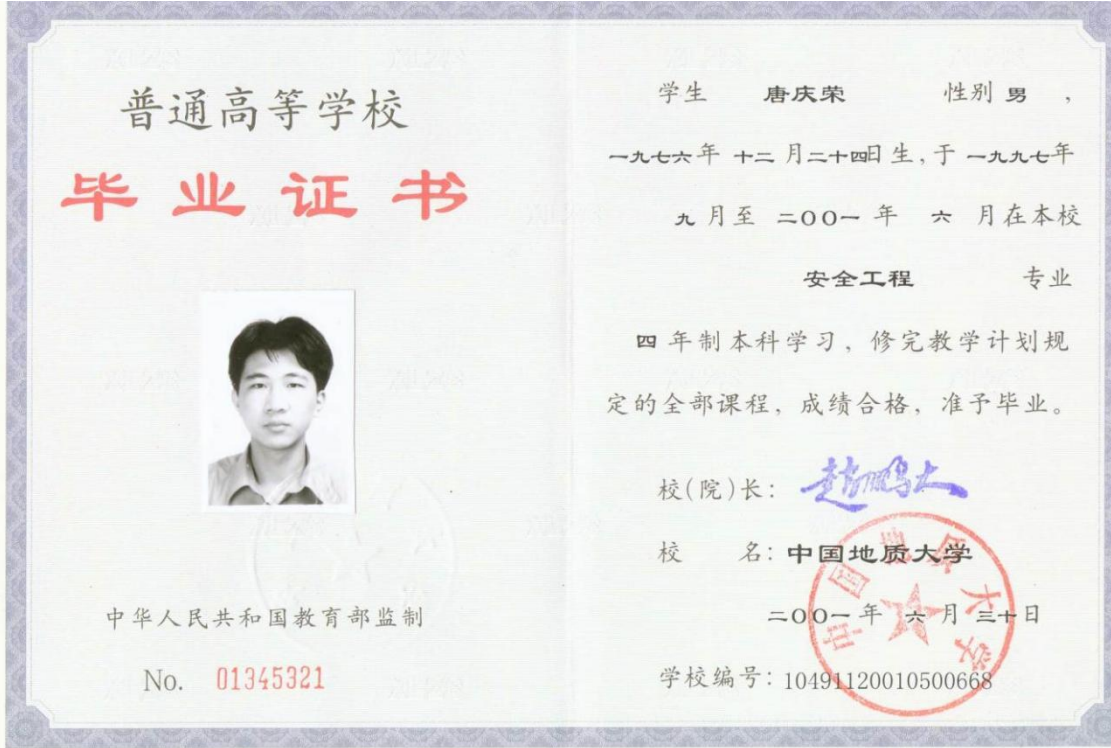 普通高等学校
毕业证书
中华人民共和国教育部监制
No. 01345321
学生 唐庆荣 性别 男 ，
一九七六年 十二 月二十四日生，于 一九九七年
九 月至 二〇〇一 年 六 月在本校
安全工程 专业
四 年制本科学习，修完教学计划规
定的全部课程，成绩合格，准予毕业。
校(院)长： 赵鹏大
校 名：中国地质大学
二〇〇一年 六 月 三十日
学校编号：10491120010500668
中国地质大学